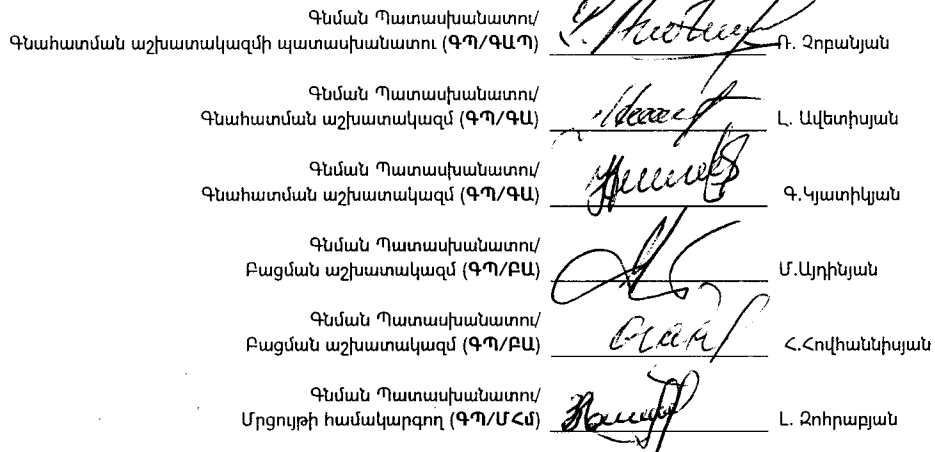 Գնման Պատասխանատու/
Գնահատման աշխատակազմի պատասխանատու (ԳՊ/ԳԱՊ) Ռ. Չոբանյան
Գնման Պատասխանատու/
Գնահատման աշխատակազմ (ԳՊ/ԳԱ) Լ. Ավետիսյան
Գնման Պատասխանատու/
Գնահատման աշխատակազմ (ԳՊ/ԳԱ) Գ.Կյատիկյան
Գնման Պատասխանատու/
Բացման աշխատակազմ (ԳՊ/ԲԱ) Մ.Այդինյան
Գնման Պատասխանատու/
Բացման աշխատակազմ (ԳՊ/ԲԱ) Հ.Հովհաննիսյան
Գնման Պատասխանատու/
Մրցույթի համակարգող (ԳՊ/ՄՀմ) Լ. Զոհրաբյան